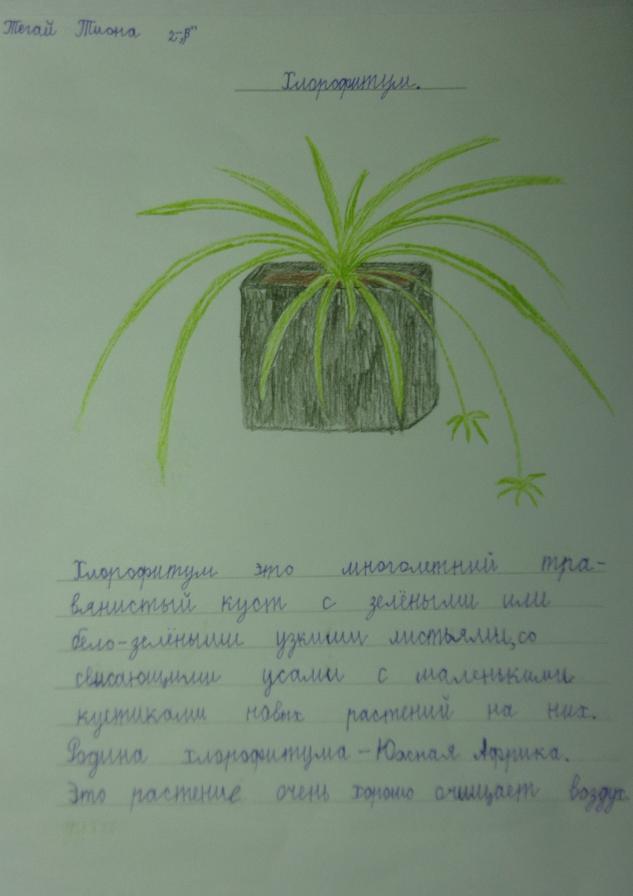 Тегай Тиона 2-„В"
Хлорофитум.
Хлорофитум это многолетний тра-
вянистый куст с зелёными или
бело-зелёными узкими листьями, со
свисающими усами с маленькими
кустиками новых растений на них.
Родина хлорофитума – Южная Африка.
Это растение очень хорошо очищает воздух.